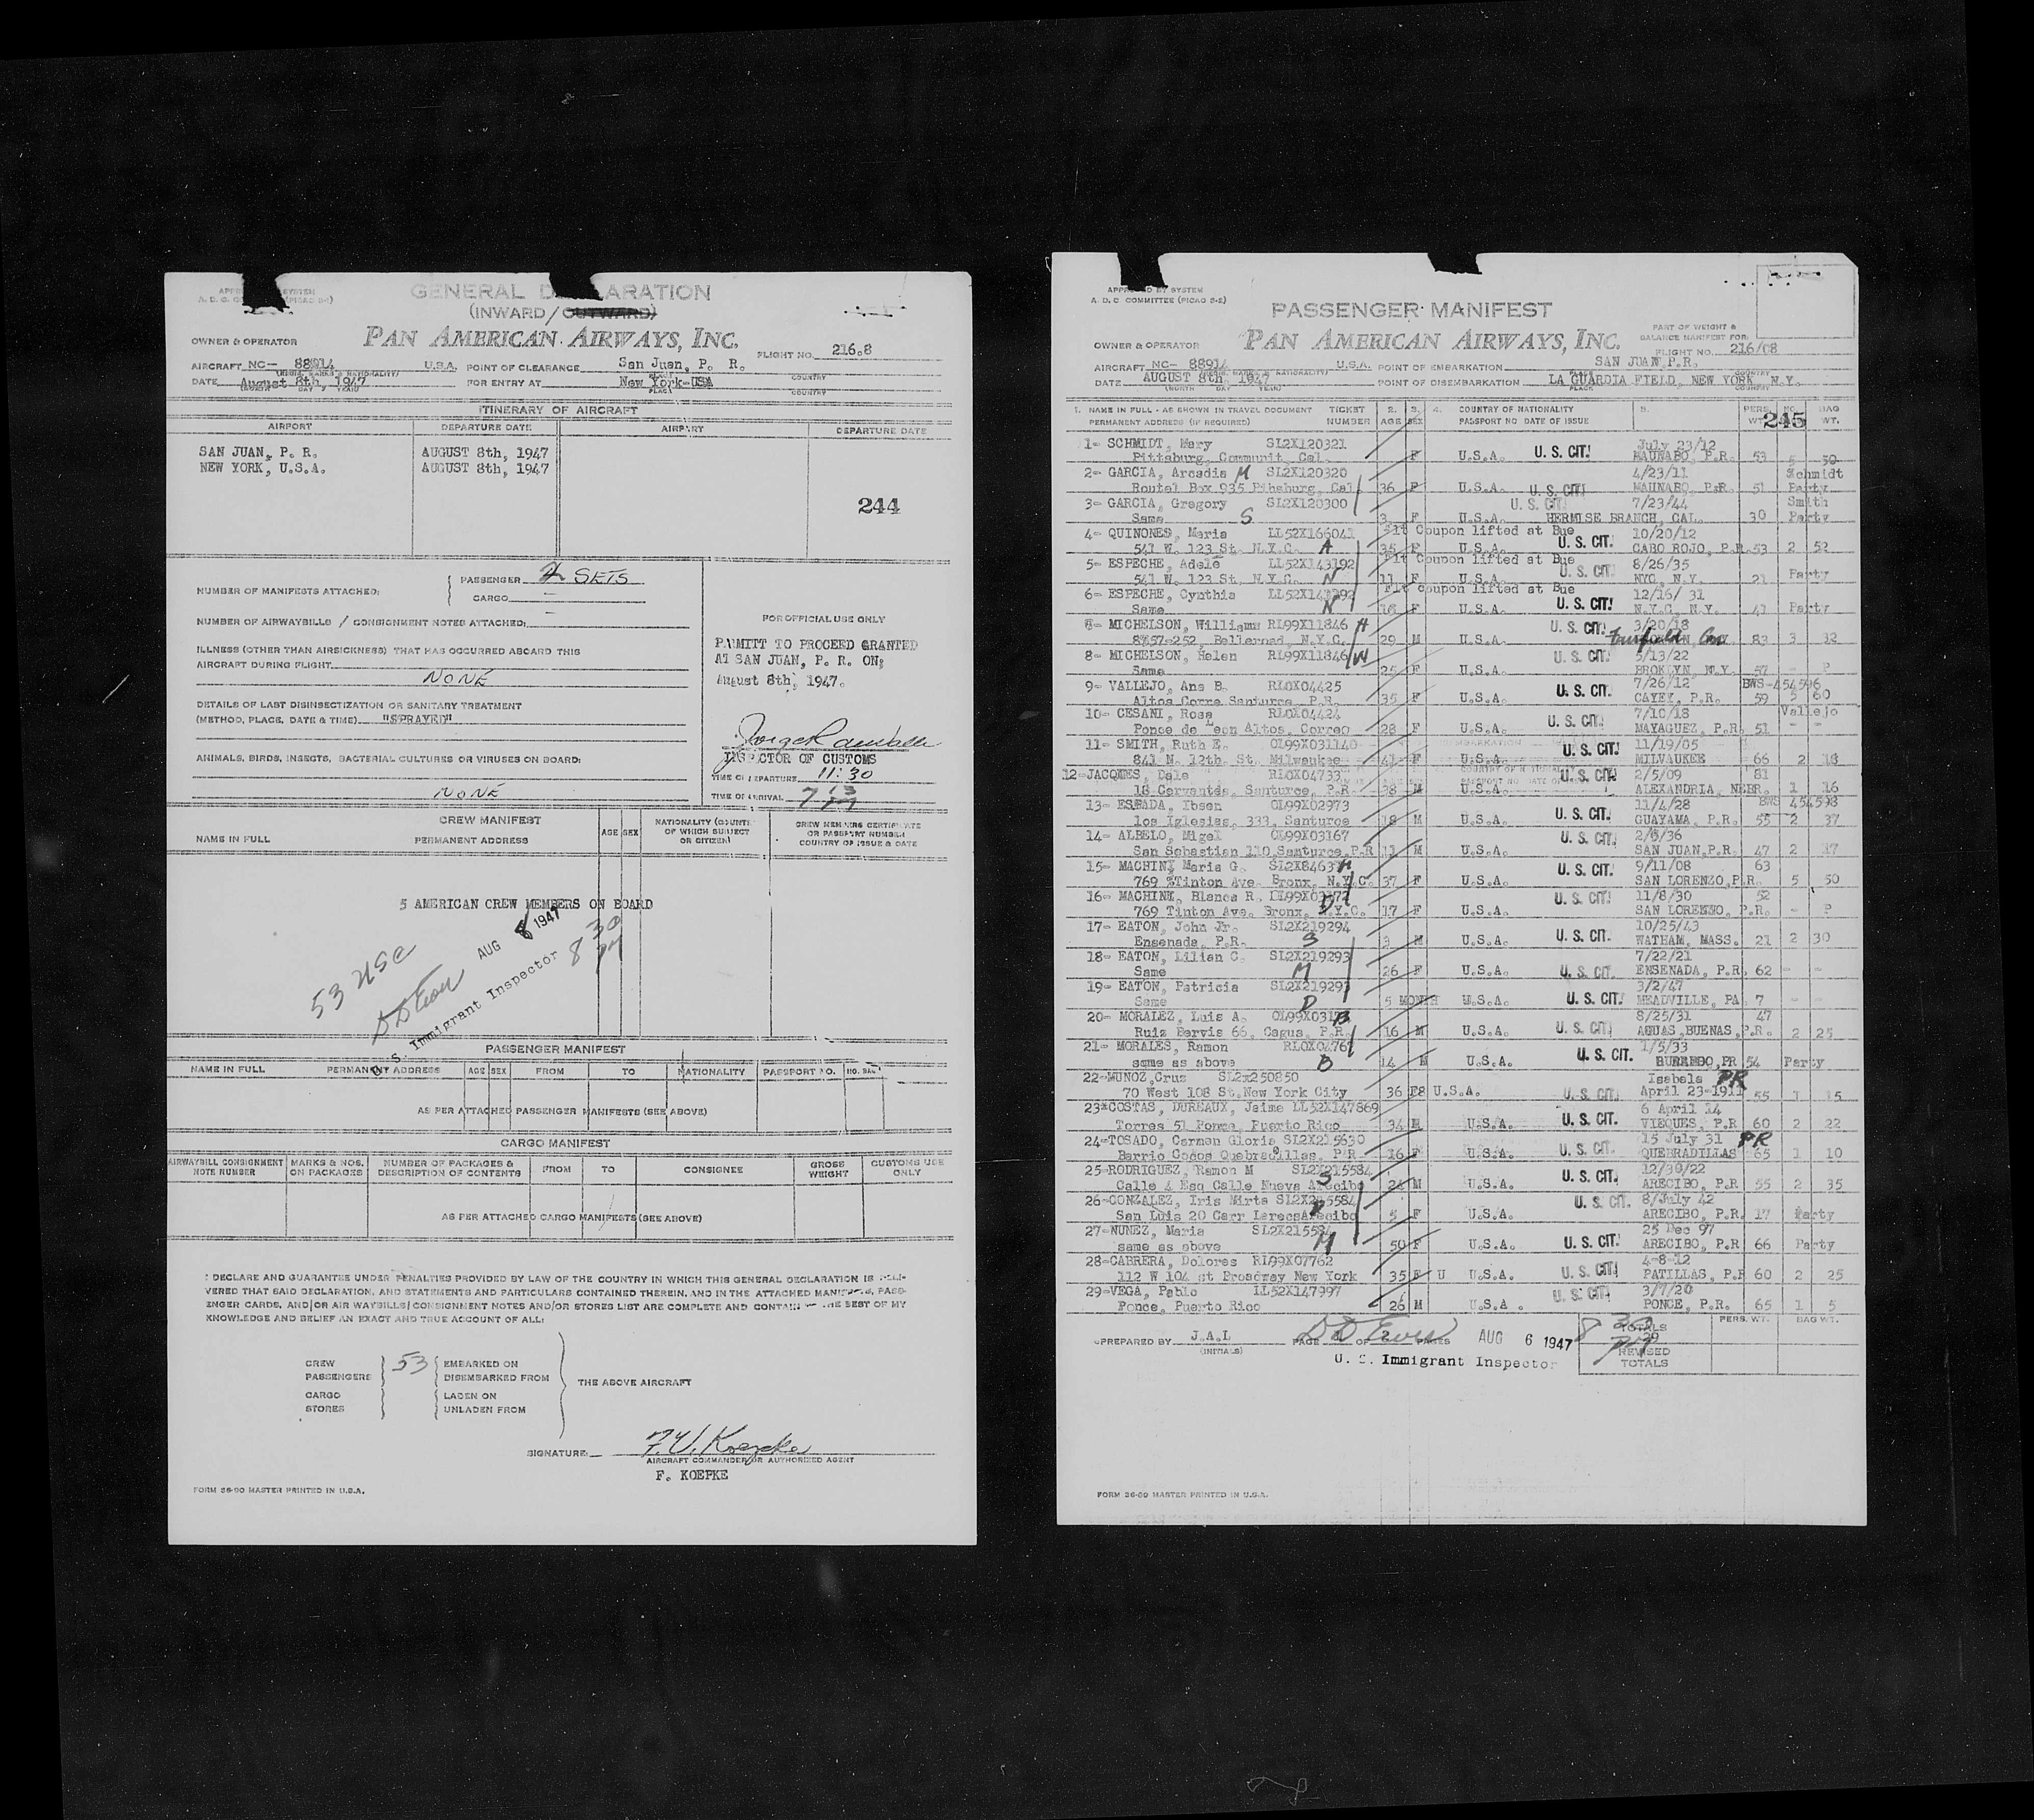 GENERAL DECLARATION
(INWARD/OUTWARD)
PAN AMERICAN AIRWAYS, INC.
OWNER & OPERATOR
FLIGHT NO. 216.8
AIRCRAFT NC- 88914 U.S.A. POINT OF CLEARANCE San Juan, P. R.
DATE August 8th, 1947 FOR ENTRY AT New York-USA
ITINERARY OF AIRCRAFT
AIRPORT DEPARTURE DATE AIRPORT DEPARTURE DATE
SAN JUAN, P. R. AUGUST 8th, 1947
NEW YORK, U.S.A. AUGUST 8th, 1947
244
NUMBER OF MANIFESTS ATTACHED: PASSENGER 2 SETS
CARGO
NUMBER OF AIRWAYBILLS / CONSIGNMENT NOTES ATTACHED:
ILLNESS (OTHER THAN AIRSICKNESS) THAT HAS OCCURRED ABOARD THIS
AIRCRAFT DURING FLIGHT
NONE
DETAILS OF LAST DISINSECTIZATION OR SANITARY TREATMENT
(METHOD, PLACE, DATE & TIME) "SPRAYED"
ANIMALS, BIRDS, INSECTS, BACTERIAL CULTURES OR VIRUSES ON BOARD:
NONE
FOR OFFICIAL USE ONLY
PAMITT TO PROCEED GRANTED
AT SAN JUAN, P. R. ON;
August 8th, 1947.
INSPECTOR OF CUSTOMS
TIME OF DEPARTURE 11:30
TIME OF ARRIVAL
CREW MANIFEST
NAME IN FULL PERMANENT ADDRESS AGE SEX NATIONALITY (COUNTRY OF WHICH SUBJECT OR CITIZEN) CREW MEMBERS CERTIFICATE OR PASSPORT NUMBER COUNTRY OF ISSUE & DATE
5 AMERICAN CREW MEMBERS ON BOARD
AUG 8 1947
53 USC
8 30 PM
U. S. Immigrant Inspector
PASSENGER MANIFEST
NAME IN FULL PERMANENT ADDRESS AGE SEX FROM TO NATIONALITY PASSPORT NO. NO. BAG
AS PER ATTACHED PASSENGER MANIFESTS (SEE ABOVE)
CARGO MANIFEST
AIRWAYBILL CONSIGNMENT NOTE NUMBER MARKS & NOS. ON PACKAGES NUMBER OF PACKAGES & DESCRIPTION OF CONTENTS FROM TO CONSIGNEE GROSS WEIGHT CUSTOMS USE ONLY
AS PER ATTACHED CARGO MANIFESTS (SEE ABOVE)
I DECLARE AND GUARANTEE UNDER PENALTIES PROVIDED BY LAW OF THE COUNTRY IN WHICH THIS GENERAL DECLARATION IS DELI-
VERED THAT SAID DECLARATION, AND STATEMENTS AND PARTICULARS CONTAINED THEREIN, AND IN THE ATTACHED MANIFESTS, PASS-
ENGER CARDS, AND/OR AIR WAYBILLS/CONSIGNMENT NOTES AND/OR STORES LIST ARE COMPLETE AND CONTAIN THE BEST OF MY
KNOWLEDGE AND BELIEF AN EXACT AND TRUE ACCOUNT OF ALL:
CREW EMBARKED ON
PASSENGERS 53 DISEMBARKED FROM THE ABOVE AIRCRAFT
CARGO LADEN ON
STORES UNLADEN FROM
SIGNATURE: F.W. Koepke
AIRCRAFT COMMANDER OR AUTHORIZED AGENT
F. KOEPKE
FORM 36-90 MASTER PRINTED IN U.S.A.
APPROVED BY SYSTEM
A. D. C. COMMITTEE (PICAO 2-2)
PASSENGER MANIFEST
PAN AMERICAN AIRWAYS, INC.
PART OF WEIGHT &
BALANCE MANIFEST FOR:
OWNER & OPERATOR FLIGHT NO. 216/08
AIRCRAFT NC- 88914 U.S.A. POINT OF EMBARKATION SAN JUAN, P.R.
DATE AUGUST 8th, 1947 POINT OF DISEMBARKATION LA GUARDIA FIELD, NEW YORK N.Y.
1. NAME IN FULL - AS SHOWN IN TRAVEL DOCUMENT TICKET 2. 3. 4. COUNTRY OF NATIONALITY 5. PERS. NO. BAG
PERMANENT ADDRESS (IF REQUIRED) NUMBER AGE SEX PASSPORT NO DATE OF ISSUE WT. 245 WT.
1- SCHMIDT, Mary SL2X120321 July 23/12
Pittsburg, Communit, Cal. F U.S.A. U. S. CIT. MAUNABO, P.R. 53 5 50
2- GARCIA, Arcadia M SL2X120320 4/23/11 Schmidt
Route1 Box 935 Pihsburg, Cal. 36 F U.S.A. U. S. CIT. MAUNABO, P.R. 51 Party
3- GARCIA, Gregory SL2X120300 U. S. CIT. 7/23/44 Smith
Same S 3 F U.S.A. HERMISE BRANCH, CAL. 30 Party
4- QUINONES, Maria LL52X166041 Flt Coupon lifted at Bue 10/20/12
541 W. 123 St. N.Y.C. A 35 F U.S.A. U. S. CIT. CABO ROJO, P.R. 53 2 52
5- ESPECHE, Adele LL52X143192 Flt Coupon lifted at Bue 8/26/35
541 W. 123 St. N.Y.C. N 11 F U.S.A. U. S. CIT. NYC, N.Y. 21 Party
6- ESPECHE, Cynthia LL52X143192 Flt coupon lifted at Bue 12/16/ 31
Same N 16 F U.S.A. U. S. CIT. N.Y.C. N.Y. 41 Party
7- MICHELSON, Williams RL99X11846 H U. S. CIT. 3/20/18
8757-252, Belleroad, N.Y.C. 29 M U.S.A. Fairfield Con 83 3 32
8- MICHELSON, Helen RL99X11846 W U. S. CIT. 5/13/22
Same 25 F U.S.A. BROKLYN, N.Y. 57 - P
9- VALLEJO, Ana B. RLOX04425 U. S. CIT. 7/26/12 BWS-454596
Altos Corre Santurce, P.R. 35 F U.S.A. CAYEY, P.R. 59 5 60
10- CESANI, Rosa RLOX04424 7/10/18 Vallejo
Ponce de Leon Altos, Correo 28 F U.S.A. U. S. CIT. MAYAGUEZ, P.R. 51 - -
11- SMITH, Ruth E. OL99X031140 11/19/05
841 N. 12th. St. Milwaukee 41 F U.S.A. U. S. CIT. MILVAUKEE 66 2 18
12-JACQUES, Dale RLOX04733 U. S. CIT. 2/5/09 81
18 Cervantes, Santurce, P.R. 38 M U.S.A. ALEXANDRIA, NEBR. 1 16
13- ESPADA, Ibsen OL99X02973 11/4/28 BWS 454598
los Iglesias, 333, Santurce 18 M U.S.A. U. S. CIT. GUAYAMA, P.R. 55 2 37
14- ALBELO, Migel OL99X03167 2/6/36
San Sebastian 110, Santurce, P.R 11 M U.S.A. U. S. CIT. SAN JUAN, P.R. 47 2 17
15- MACHIN, Maria G. SL2X8463 M U. S. CIT. 9/11/08 63
769 Tinton Ave. Bronx, N.Y.C. 37 F U.S.A. SAN LORENZO, P.R. 5 50
16- MACHIN, Blanca R. D U. S. CIT. 11/8/30 52
769 Tinton Ave. Bronx, N.Y.C. 17 F U.S.A. SAN LORENZO, P.R. - P
17- EATON, John Jr. SL2X219294 10/25/43
Ensenada, P.R. S 3 M U.S.A. U. S. CIT. WATHAM, MASS. 21 2 30
18- EATON, Lilian C. SL2X219293 7/22/21
Same M 26 F U.S.A. U. S. CIT. ENSENADA, P.R. 62 - -
19- EATON, Patricia SL2X219293 3/2/47
Same D 5 MONTH U.S.A. U. S. CIT. MEADVILLE, PA 7 - -
20- MORALEZ, Luis A. B 8/25/31 47
Ruiz Bervis 66, Cagus, P.R. 16 M U.S.A. U. S. CIT. AGUAS, BUENAS, P.R. 2 25
21- MORALES, Ramon RLOX04767 1/5/33
same as above B 14 M U.S.A. U. S. CIT. PR 54 Party
22-MUNOZ, Cruz SL2x250850 Isabela PR
70 West 108 St. New York City 36 F U.S.A. U. S. CIT. April 23-1911 55 1 15
23-COSTAS, DUREAUX, Jaime LL52X147869 6 April 14
Torres 51 Ponce, Puerto Rico 34 M U.S.A. U. S. CIT. VIEQUES, P.R 60 2 22
24-TOSADO, Carmen Gloria SL2X215630 15 July 31 PR
Barrio Cocos Quebradillas, P.R 16 F U.S.A. U. S. CIT. QUEBRADILLAS 65 1 10
25-RODRIGUEZ, Ramon M SL2X215584 12/30/22
Calle 4 Esq Calle Nueva Arecibo S 24 M U.S.A. U. S. CIT. ARECIBO, P.R 55 2 35
26-GONZALEZ, Iris Mirta SL2X215584 U. S. CIT. 8/July 42
San Luis 20 Carr LaresArecibo D 5 F U.S.A. ARECIBO, P.R. 17 Party
27-NUNEZ, Maria SL2X215584 25 Dec 97
same as above M 50 F U.S.A. U. S. CIT. ARECIBO, P.R 66 Party
28-CABRERA, Dolores RL99X07762 4-8-12
112 W 104 st Broadway New York 35 F U U.S.A. U. S. CIT. PATILLAS, P.R 60 2 25
29-VEGA, Pablo LL52X147997 U. S. CIT. 3/7/20
Ponce, Puerto Rico 26 M U.S.A. PONCE, P.R. 65 1 5
PREPARED BY J.A.L PAGE 1 OF 2 PAGES AUG 6 1947 8 30 PM TOTALS PERS. WT. BAG WT.
(INITIALS) 29
U. S. Immigrant Inspector REVISED TOTALS
FORM 36-90 MASTER PRINTED IN U.S.A.